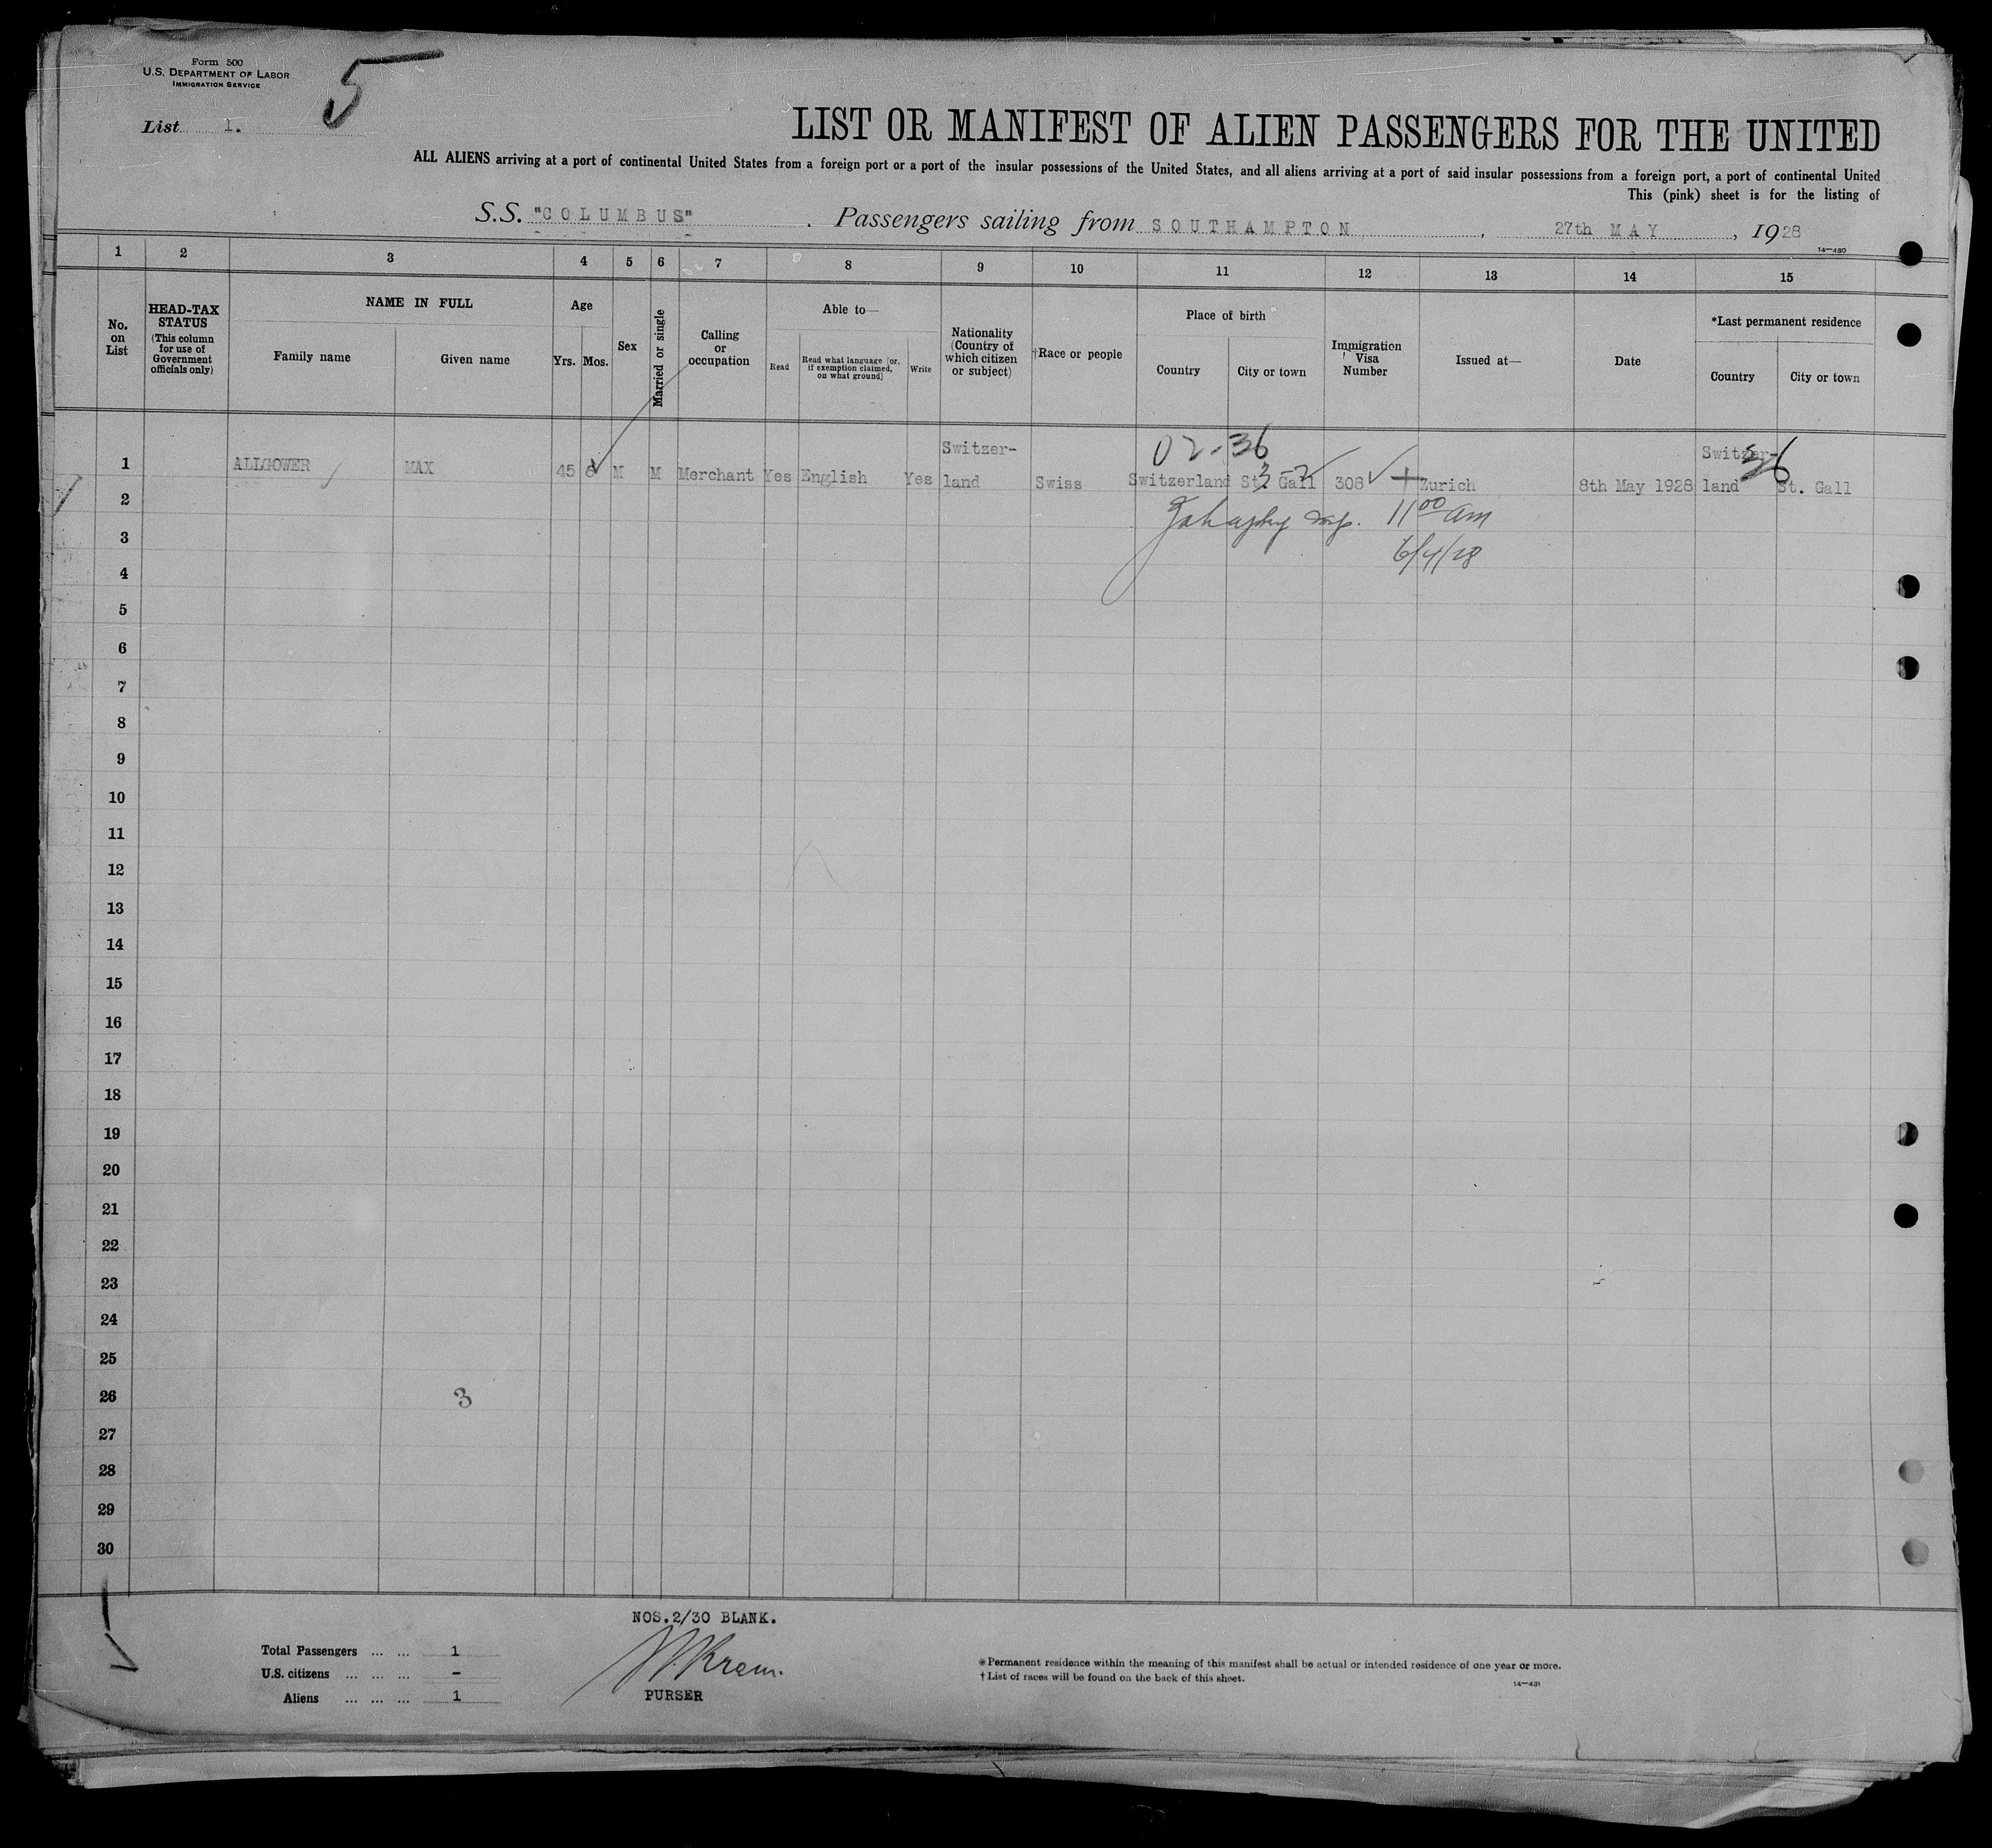 Form 500
U.S. DEPARTMENT OF LABOR
IMMIGRATION SERVICE
5
List 1.
LIST OR MANIFEST OF ALIEN PASSENGERS FOR THE UNITED
ALL ALIENS arriving at a port of continental United States from a foreign port or a port of the insular possessions of the United States, and all aliens arriving at a port of said insular possessions from a foreign port, a port of continental United
This (pink) sheet is for the listing of
S.S. "COLUMBUS" . Passengers sailing from SOUTHAMPTON , 27th MAY , 1928
14—430
1 2 3 4 5 6 7 8 9 10 11 12 13 14 15
No. on List
HEAD-TAX STATUS (This column for use of Government officials only)
NAME IN FULL
Family name Given name
Age
Yrs. Mos.
Sex
Married or single
Calling or occupation
Able to—
Read Read what language [or, if exemption claimed, on what ground] Write
Nationality (Country of which citizen or subject)
†Race or people
Place of birth
Country City or town
Immigration Visa Number
Issued at—
Date
*Last permanent residence
Country City or town
02-36
36
1 ALLGOWER MAX 45 6 M M Merchant Yes English Yes Switzer-land Swiss Switzerland St. Gall 308 Zurich 8th May 1928 Switzer-land St. Gall
2
11 00 am
3
6/4/28
4
5
6
7
8
9
10
11
12
13
14
15
16
17
18
19
20
21
22
23
24
25
26
3
27
28
29
30
NOS.2/30 BLANK.
Total Passengers ... ... 1
U.S. citizens ... ... ... -
Aliens ... ... ... 1
PURSER
* Permanent residence within the meaning of this manifest shall be actual or intended residence of one year or more.
† List of races will be found on the back of this sheet.
14—431